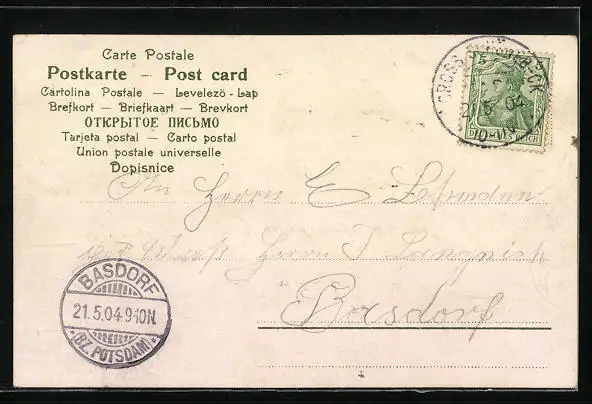 Carte Postale
Postkarte – Post card
Cartolina Postale — Levelező-Lap
Brefkort — Briefkaart — Brevkort
ОТКРЫТОЕ ПИСЬМО
Tarjeta postal — Carto postal
Union postale universelle
Dopisnice
5 5
GROSS BECK
21.5.04
10-11N
DEUTSCHES REICH
An Herrn E
Herrn
Basdorf
BASDORF
21.5.04 9-10N
(BZ. POTSDAM)